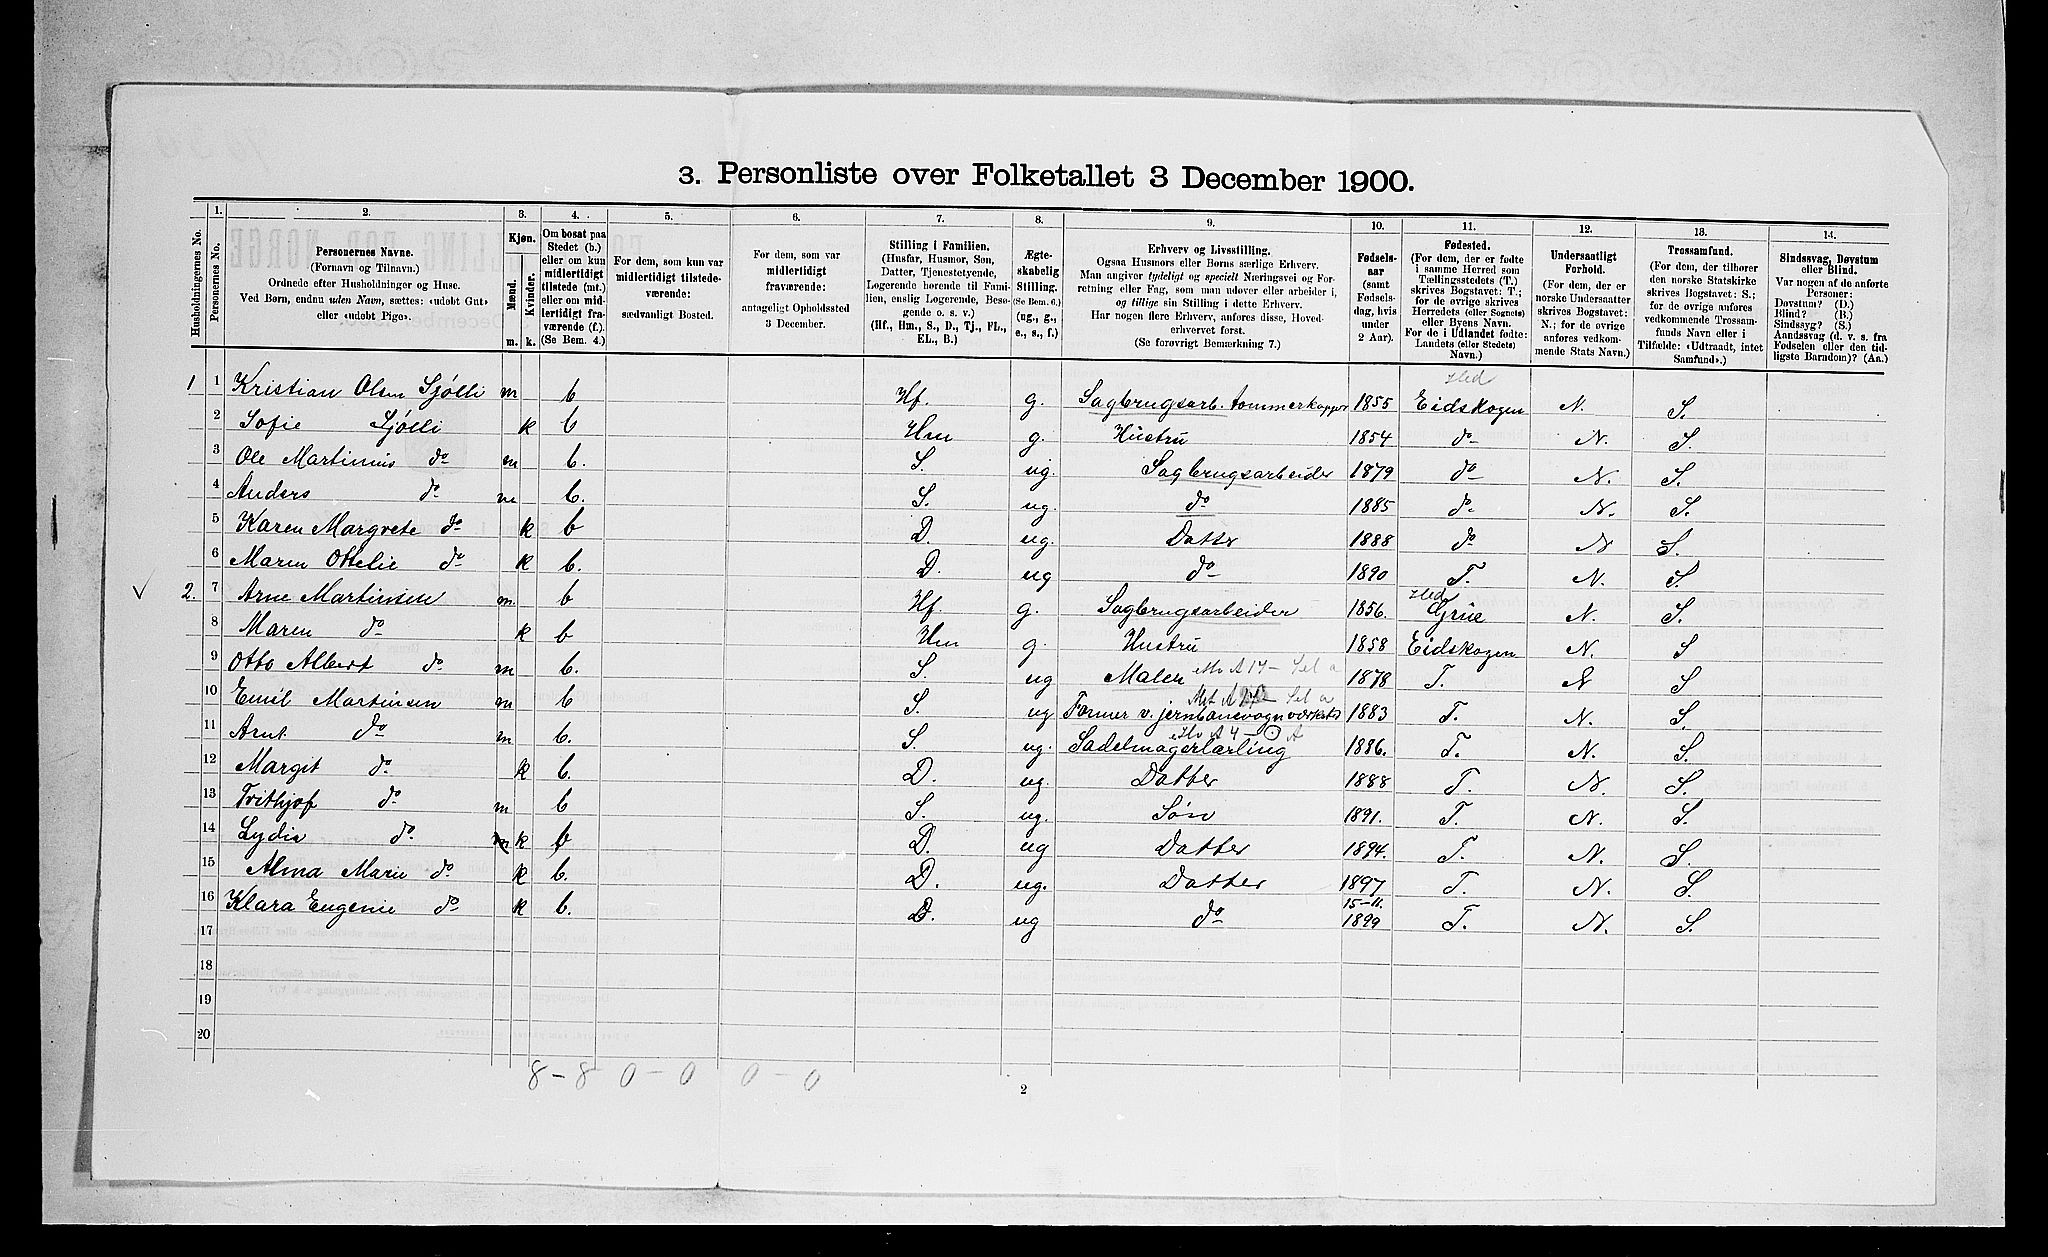 3. Personliste over Folketallet 3 December 1900.
1. 2. 3. 4. 5. 6. 7. 8. 9. 10. 11. 12. 13. 14.
Husholdningernes No.
Personernes No.
Personernes Navne.
(Fornavn og Tilnavn.)
Ordnede efter Husholdninger og Huse.
Ved Børn, endnu uden Navn, sættes: «udøbt Gut»
eller «udøbt Pige».
Kjøn.
Mænd.
Kvinder.
m. k.
Om bosat paa
Stedet (b.)
eller om kun
midlertidigt
tilstede (mt.)
eller om mid-
lertidigt fra-
værende (f.).
(Se Bem. 4.)
For dem, som kun var
midlertidigt tilstede-
værende:
sædvanligt Bosted.
For dem, som var
midlertidigt
fraværende:
antageligt Opholdssted
3 December.
Stilling i Familien.
(Husfar, Husmor, Søn,
Datter, Tjenestetyende,
Logerende hørende til Fami-
lien, enslig Logerende, Besø-
gende o. s. v.)
(Hf., Hm., S., D., Tj., FL.,
EL., B.)
Ægte-
skabelig
Stilling.
(Se Bem. 6.)
(ug., g.,
e., s., f.)
Erhverv og Livsstilling.
Ogsaa Husmors eller Børns særlige Erhverv.
Man angiver tydeligt og specielt Næringsvei og For-
retning eller Fag, som man udøver eller arbeider i,
og tillige sin Stilling i dette Erhverv.
Har nogen flere Erhverv, anføres disse, Hoved-
erhvervet først.
(Se forøvrigt Bemærkning 7.)
Fødsels-
aar
(samt
Fødsels-
dag, hvis
under
2 Aar).
Fødested.
(For dem, der er fødte
i samme Herred som
Tællingsstedets (T.)
skrives Bogstavet: T.;
for de øvrige skrives
Herredets (eller Sognets)
eller Byens Navn.
For de i Udlandet fødte:
Landets (eller Stedets)
Navn.)
Undersaatligt
Forhold.
(For dem, der er
norske Undersaatter
skrives Bogstavet:
N.; for de øvrige
anføres vedkom-
mende Stats Navn.)
Trossamfund.
(For dem, der tilhører
den norske Statskirke
skrives Bogstavet: S.;
for de øvrige anføres
vedkommende Trossam-
funds Navn eller i
Tilfælde: «Udtraadt, intet
Samfund».)
Sindssvag, Døvstum
eller Blind.
Var nogen af de anførte
Personer:
Døvstum? (D.)
Blind? (B.)
Sindssyg? (S.)
Aandssvag (d. v. s. fra
Fødselen eller den tid-
ligste Barndom)? (Aa.)
Hed
1 1 Kristian Olsen Sjølli m b Hf. g. Sagbrugsarb. tømmerkapper 1855 Eidskogen N. S.
2 Sofie Sjølli k b Hm g. Hustru 1854 do N. S.
3 Ole Martinius do m b. S. ug. Sagbrugsarbeider 1879 do N. S.
4 Anders do m b. S. ug. do 1885 do N. S.
5 Karen Margrete do k b D. ug. Datter 1888 do N S.
6 Maren Ottelie do k b. D. ug do 1890 T. N. S.
2. 7 Arne Martinsen m. b Hf. g. Sagbrugsarbeider 1856. Hed Grue N. S.
8 Maren do k b Hm g. Hustru 1858 Eidskogen N. S
9 Otto Albert do m b. S. ug Maler 1878 T. N S
10 Emil Martinsen m b S. ug Former v. jernbanevognværksted 1883 T. N. S.
11 Arnt do m b. S. ug. Sadelmagerlærling 1886. T. N. S.
12 Margit do k b. D. ug. Datter 1888 T. N. S.
13 Frithjof do m b S. ug. Søn 1891. T. N. S.
14 Lydia do k b D. ug Datter 1894. T. N. S.
15 Alma Marie do k b. D. ug. Datter 1897 T. N. S.
16 Klara Eugenie do k b. D. ug do 15-11. 1899 T. N. S.
17
18
19
20
8 - 8 0 - 0 0 - 0
2